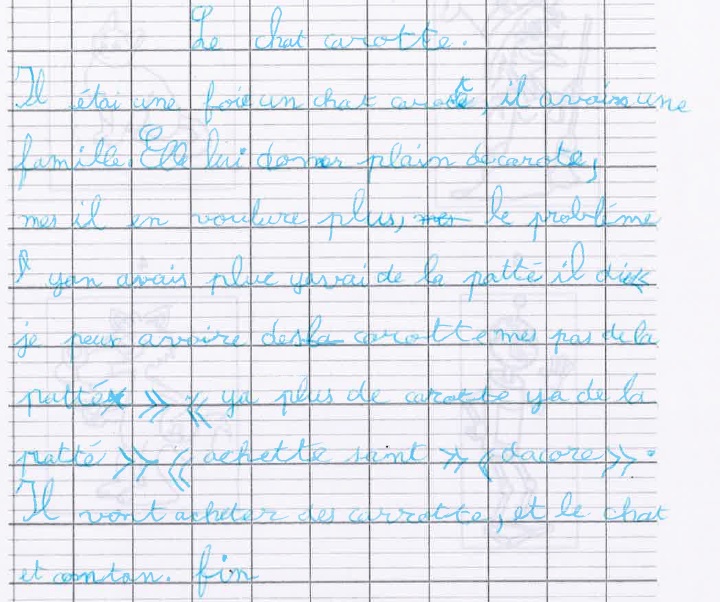 Le chat carotte.
Il étai une foie un chat carote, il avais une
famille. Elle lui donner plain de carote,
mes il en voulure plus, mes le problême
I yan avais plue yavai de la patté il dit «
je peux avoire des la carotte mes pas de la
patté » « ya plus de carotte ya de la
patté » « achette sant » « dacore ».
Il vont acheter des carrotte, et le chat
et contan. fin